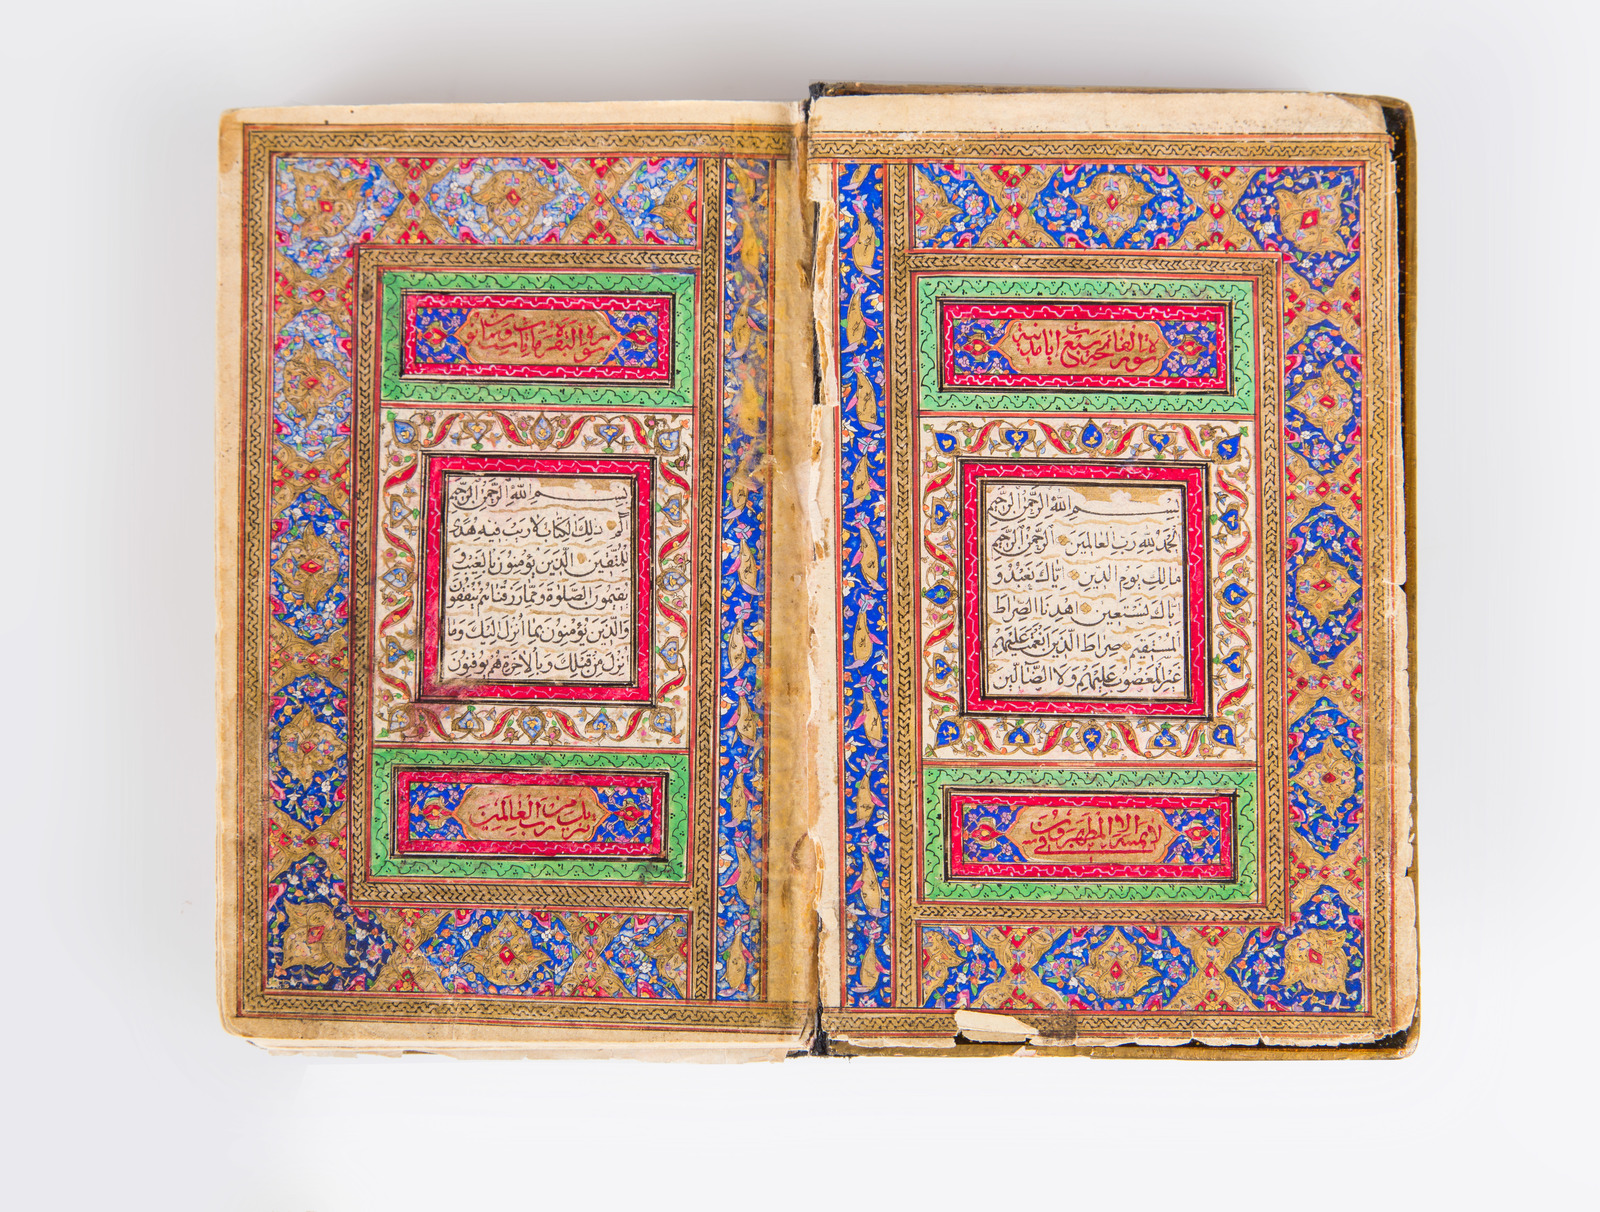 سورة الفاتحة سبع آيات
بِسْمِ اللّهِ الرَّحْمنِ الرَّحِيمِ
الحَمْدُ للّهِ رَبِّ العَالَمِينَ الرَّحْمنِ الرَّحِيمِ
مَالِكِ يَوْمِ الدِّينِ إِيَّاكَ نَعْبُدُ وَ
إِيَّاكَ نَسْتَعِينُ اهْدِنَا الصِّرَاطَ
المُسْتَقِيمَ صِرَاطَ الَّذِينَ أَنْعَمْتَ عَلَيْهِمْ
غَيْرِ المَغْضُوبِ عَلَيْهِمْ وَلَا الضَّالِّينَ
لا يمسه إلا المطهرون
سورة البقرة مائتان وست
بِسْمِ اللّهِ الرَّحْمنِ الرَّحِيمِ
الم ذلِكَ الكِتَابُ لَا رَيْبَ فِيهِ هُدًى
لِلْمُتَّقِينَ الَّذِينَ يُؤْمِنُونَ بِالغَيْبِ وَ
يُقِيمُونَ الصَّلوةَ وَمِمَّا رَزَقْنَاهُمْ يُنْفِقُونَ
وَالَّذِينَ يُؤْمِنُونَ بِمَا أُنْزِلَ إِلَيْكَ وَمَا
أُنْزِلَ مِنْ قَبْلِكَ وَبِالآخِرَةِ هُمْ يُوقِنُونَ
تنزيل من رب العالمين